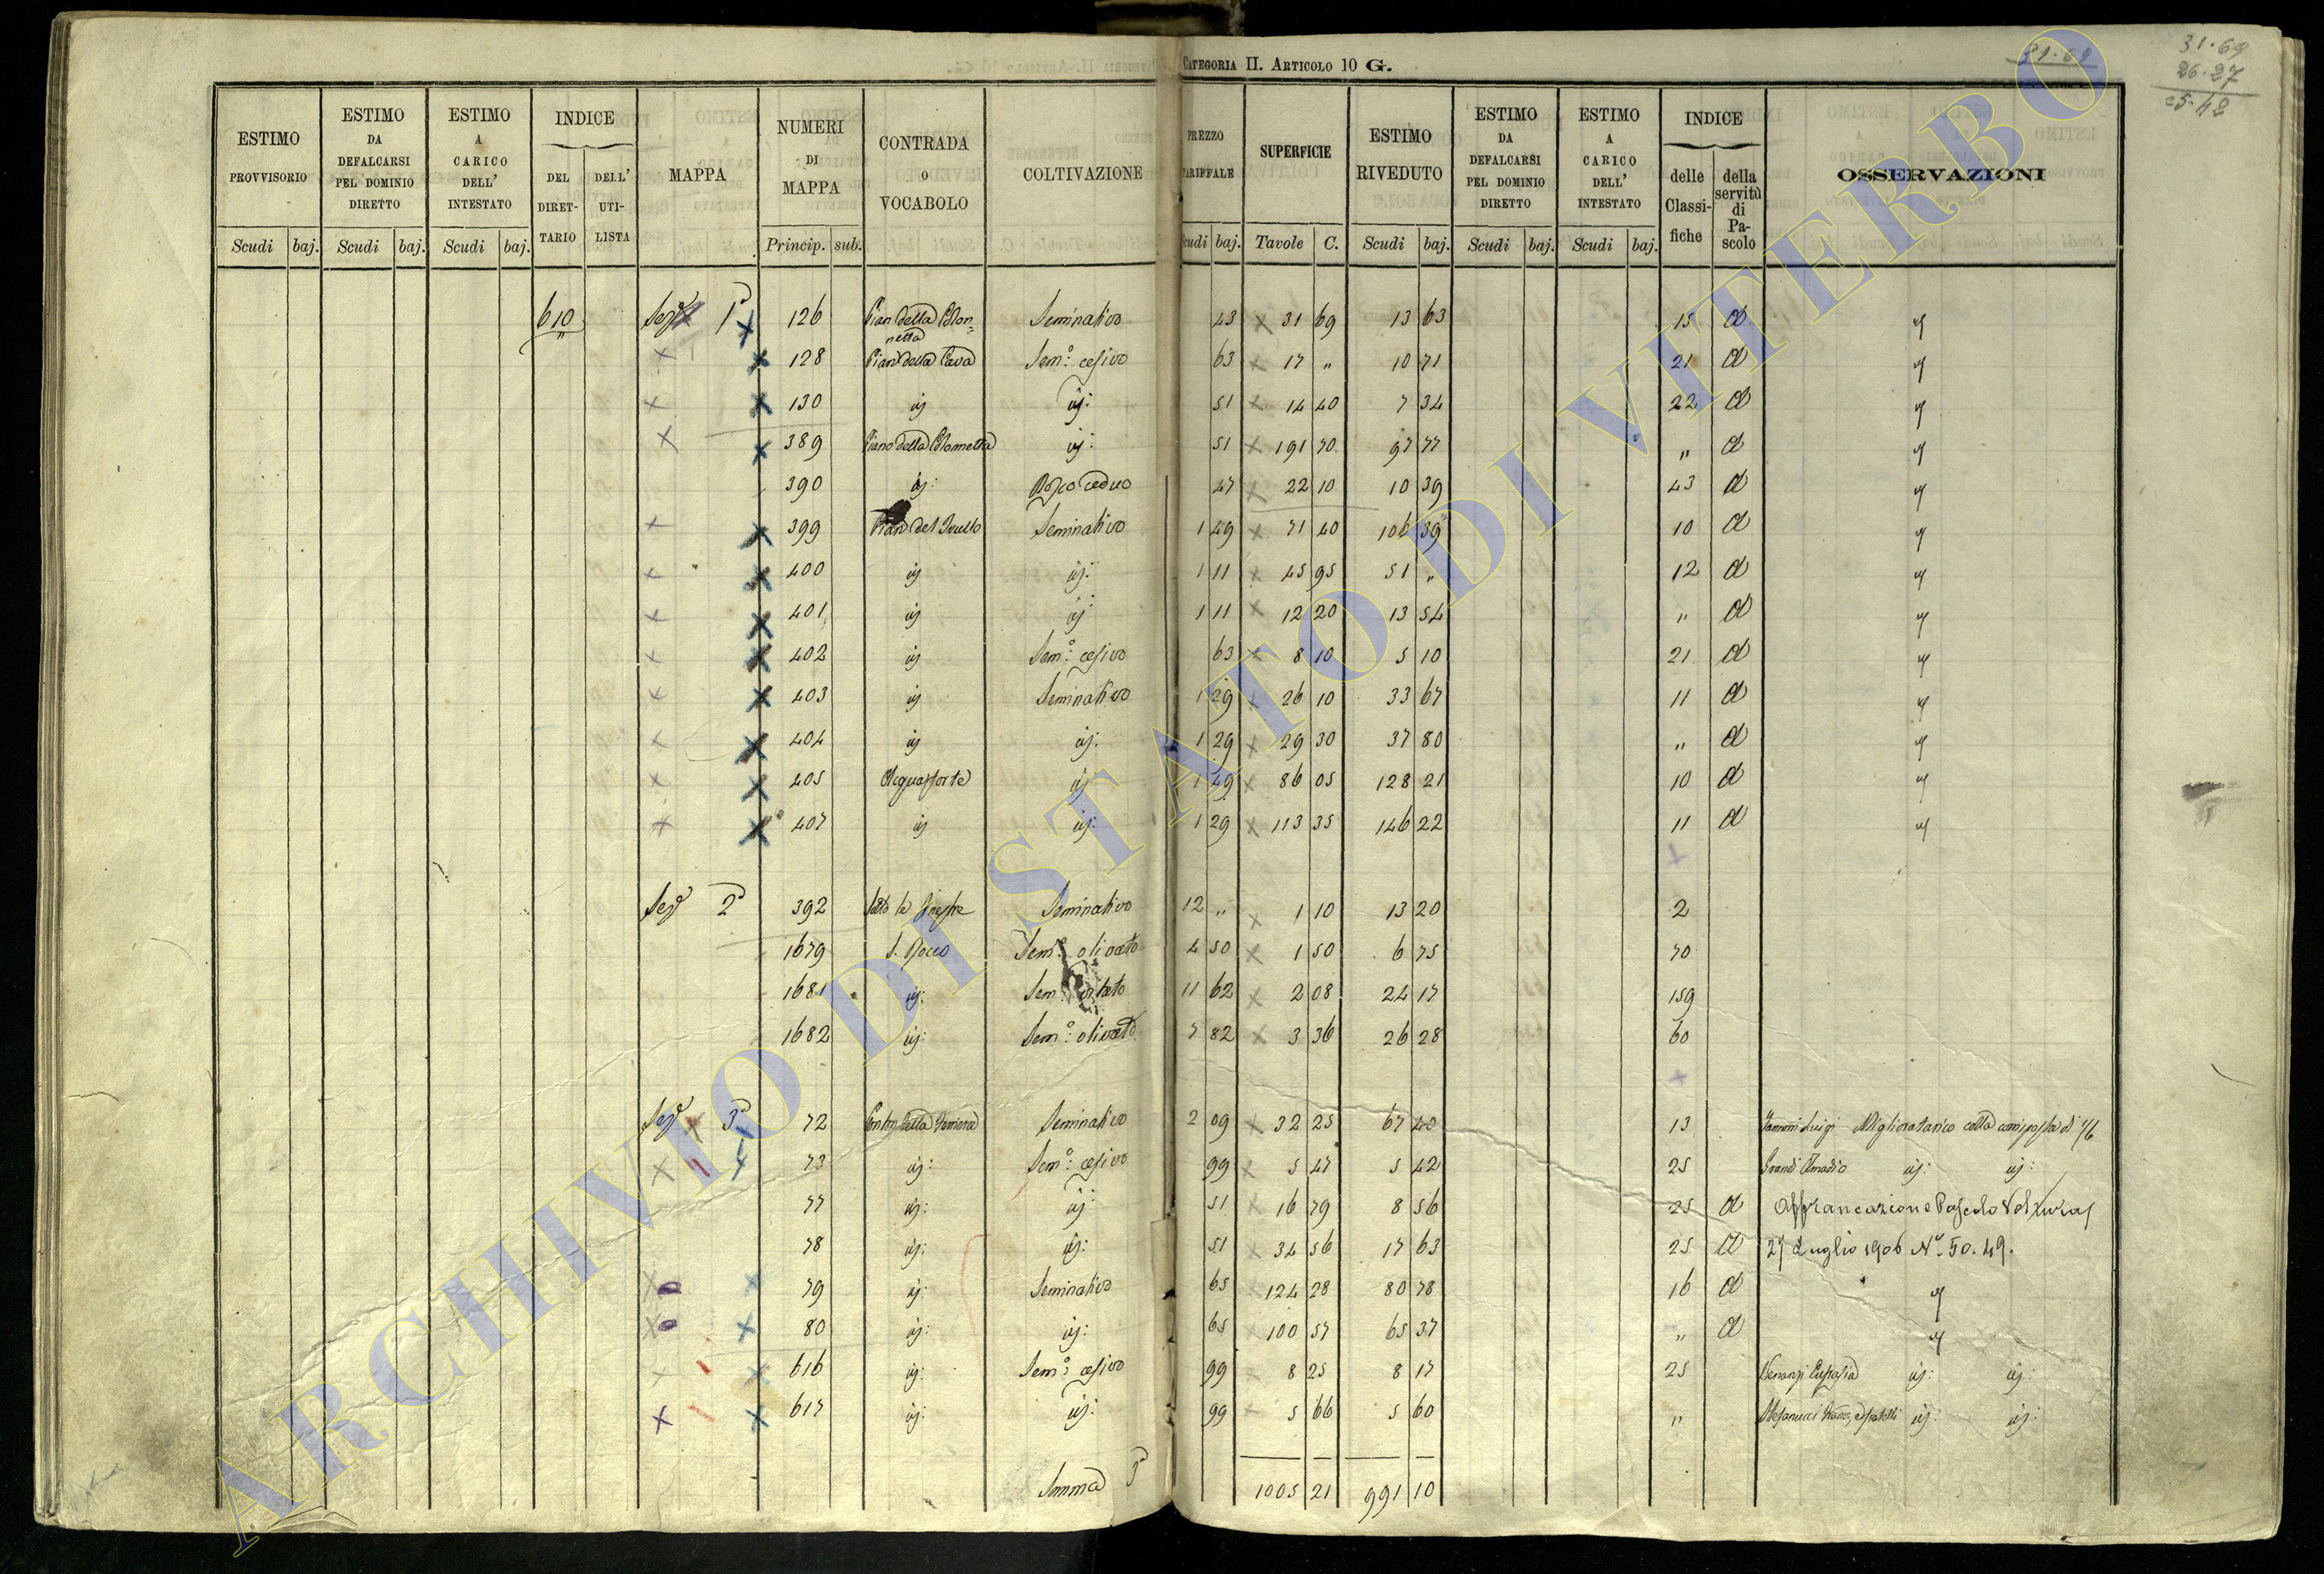 CATEGORIA II. ARTICOLO 10 G.
31·69
31·69
26·27
ESTIMO PROVVISORIO
ESTIMO DA DEFALCARSI PEL DOMINIO DIRETTO
ESTIMO A CARICO DELL' INTESTATO
INDICE
DEL DIRET-TARIO
DELL' UTI-LISTA
MAPPA
NUMERI DI MAPPA
CONTRADA O VOCABOLO
COLTIVAZIONE
PREZZO TARIFFALE
SUPERFICIE
ESTIMO RIVEDUTO
ESTIMO DA DEFALCARSI PEL DOMINIO DIRETTO
ESTIMO A CARICO DELL' INTESTATO
INDICE
delle Classi-fiche
della servitù di Pa-scolo
OSSERVAZIONI
Scudi baj. Scudi baj. Scudi baj. Princip. sub. Scudi baj. Tavole C. Scudi baj. Scudi baj. Scudi baj.
610 Sez.e 1a 126 Pian della Colon= Seminativo 43 31 69 13 63 15 a
netta
128 Pian della Cava Sem.o cesivo 63 17 „ 10 71 21 a
130 id 51 14 40 7 34 22 a
389 Piano della Colonnetta id: 51 191 70 97 77 „ a
390 id: Bosco ceduo 47 22 10 10 39 43 a
399 Pian del Seminativo 1 49 71 40 106 39 10 a
400 id id: 1 11 45 95 51 „ 12 a
401 id id 1 11 12 20 13 54 „ a
402 id Sem.o cesivo 63 8 10 5 10 21 a
403 id Seminativo 1 29 26 10 33 67 11 a
404 id id: 1 29 29 30 37 80 „ a
405 Acquaforte id 1 49 86 05 128 21 10 a
407 id id: 1 29 113 35 146 22 11 a
Sez.e 2a 392 Sotto le Seminativo 12 „ 1 10 13 20 2
1679 S. Rocco Sem.o olivato 4 50 1 50 6 75 70
1681 id: Sem.o vitato 11 62 2 08 24 17 159
1682 id: Sem.o olivato 7 82 3 36 26 28 60
Sez.e 3a 72 della Seminativo 2 09 32 25 67 40 13 Luigi Miglioratario colla corrisposta di 1/6
73 id: Sem.o cesivo 99 5 47 5 42 25 Amadio id: id:
77 id: id 51 16 79 8 56 25 a Affrancazione Pascolo Voltura
78 id: id: 51 34 56 17 63 25 a 27 Luglio 1906 No. 50.49.
79 id: Seminativo 65 124 28 80 78 16 a
80 id: id: 65 100 57 65 37 „ a
616 id: Sem.o cesivo 99 8 25 8 17 25 id: id:
617 id: id: 99 5 66 5 60 „ Stefanucci e fratelli id: id:
Somma 1005 21 991 10
ARCHIVIO DI STATO DI VITERBO